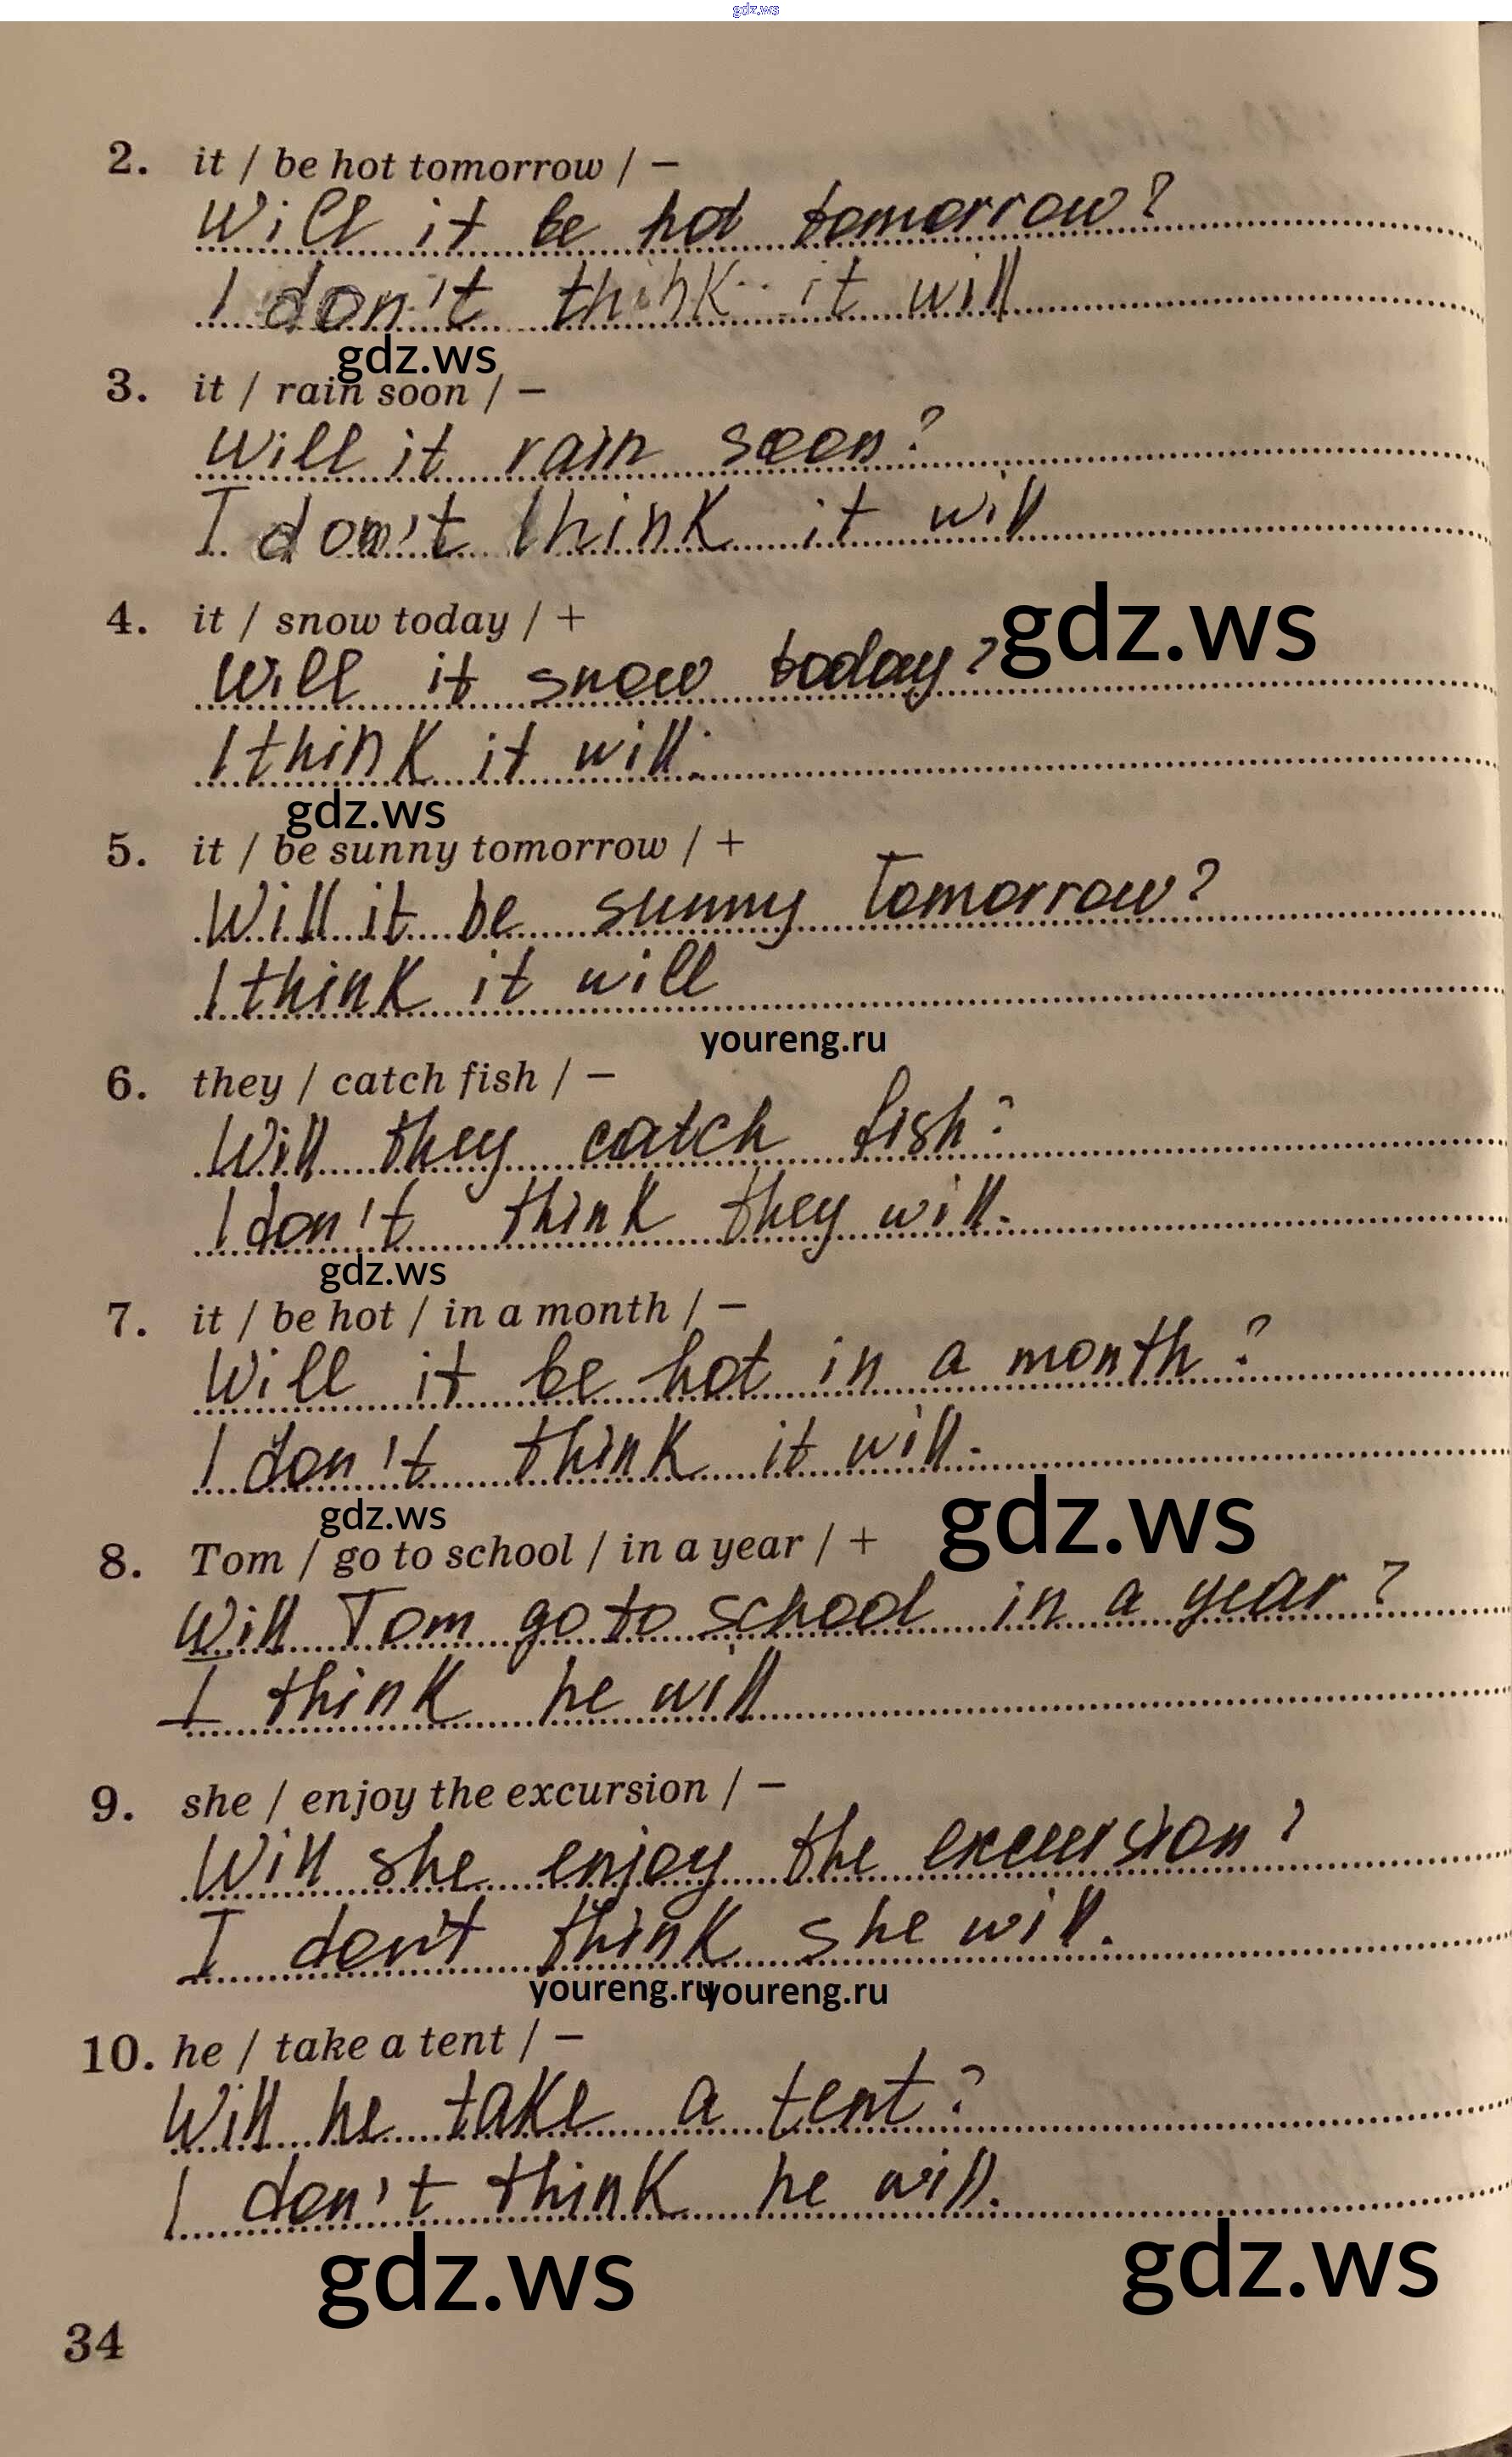 gdz.ws
2. it / be hot tomorrow / −
Will it be hot tomorrow?
I don't think it will
gdz.ws
3. it / rain soon / −
Will it rain soon?
I don't think it will
4. it / snow today / +
gdz.ws
Will it snow today?
I think it will.
gdz.ws
5. it / be sunny tomorrow / +
Will it be sunny Tomorrow?
I think it will
youreng.ru
6. they / catch fish / −
Will they catch fish?
I don't think they will.
gdz.ws
7. it / be hot / in a month / −
Will it be hot in a month?
I don't think it will.
gdz.ws
gdz.ws
8. Tom / go to school / in a year / +
Will Tom go to school in a year?
I think he will
9. she / enjoy the excursion / −
Will she enjoy the excursion?
I don't think she will.
youreng.ru youreng.ru
10. he / take a tent / −
Will he take a tent?
I don't think he will.
gdz.ws gdz.ws
34